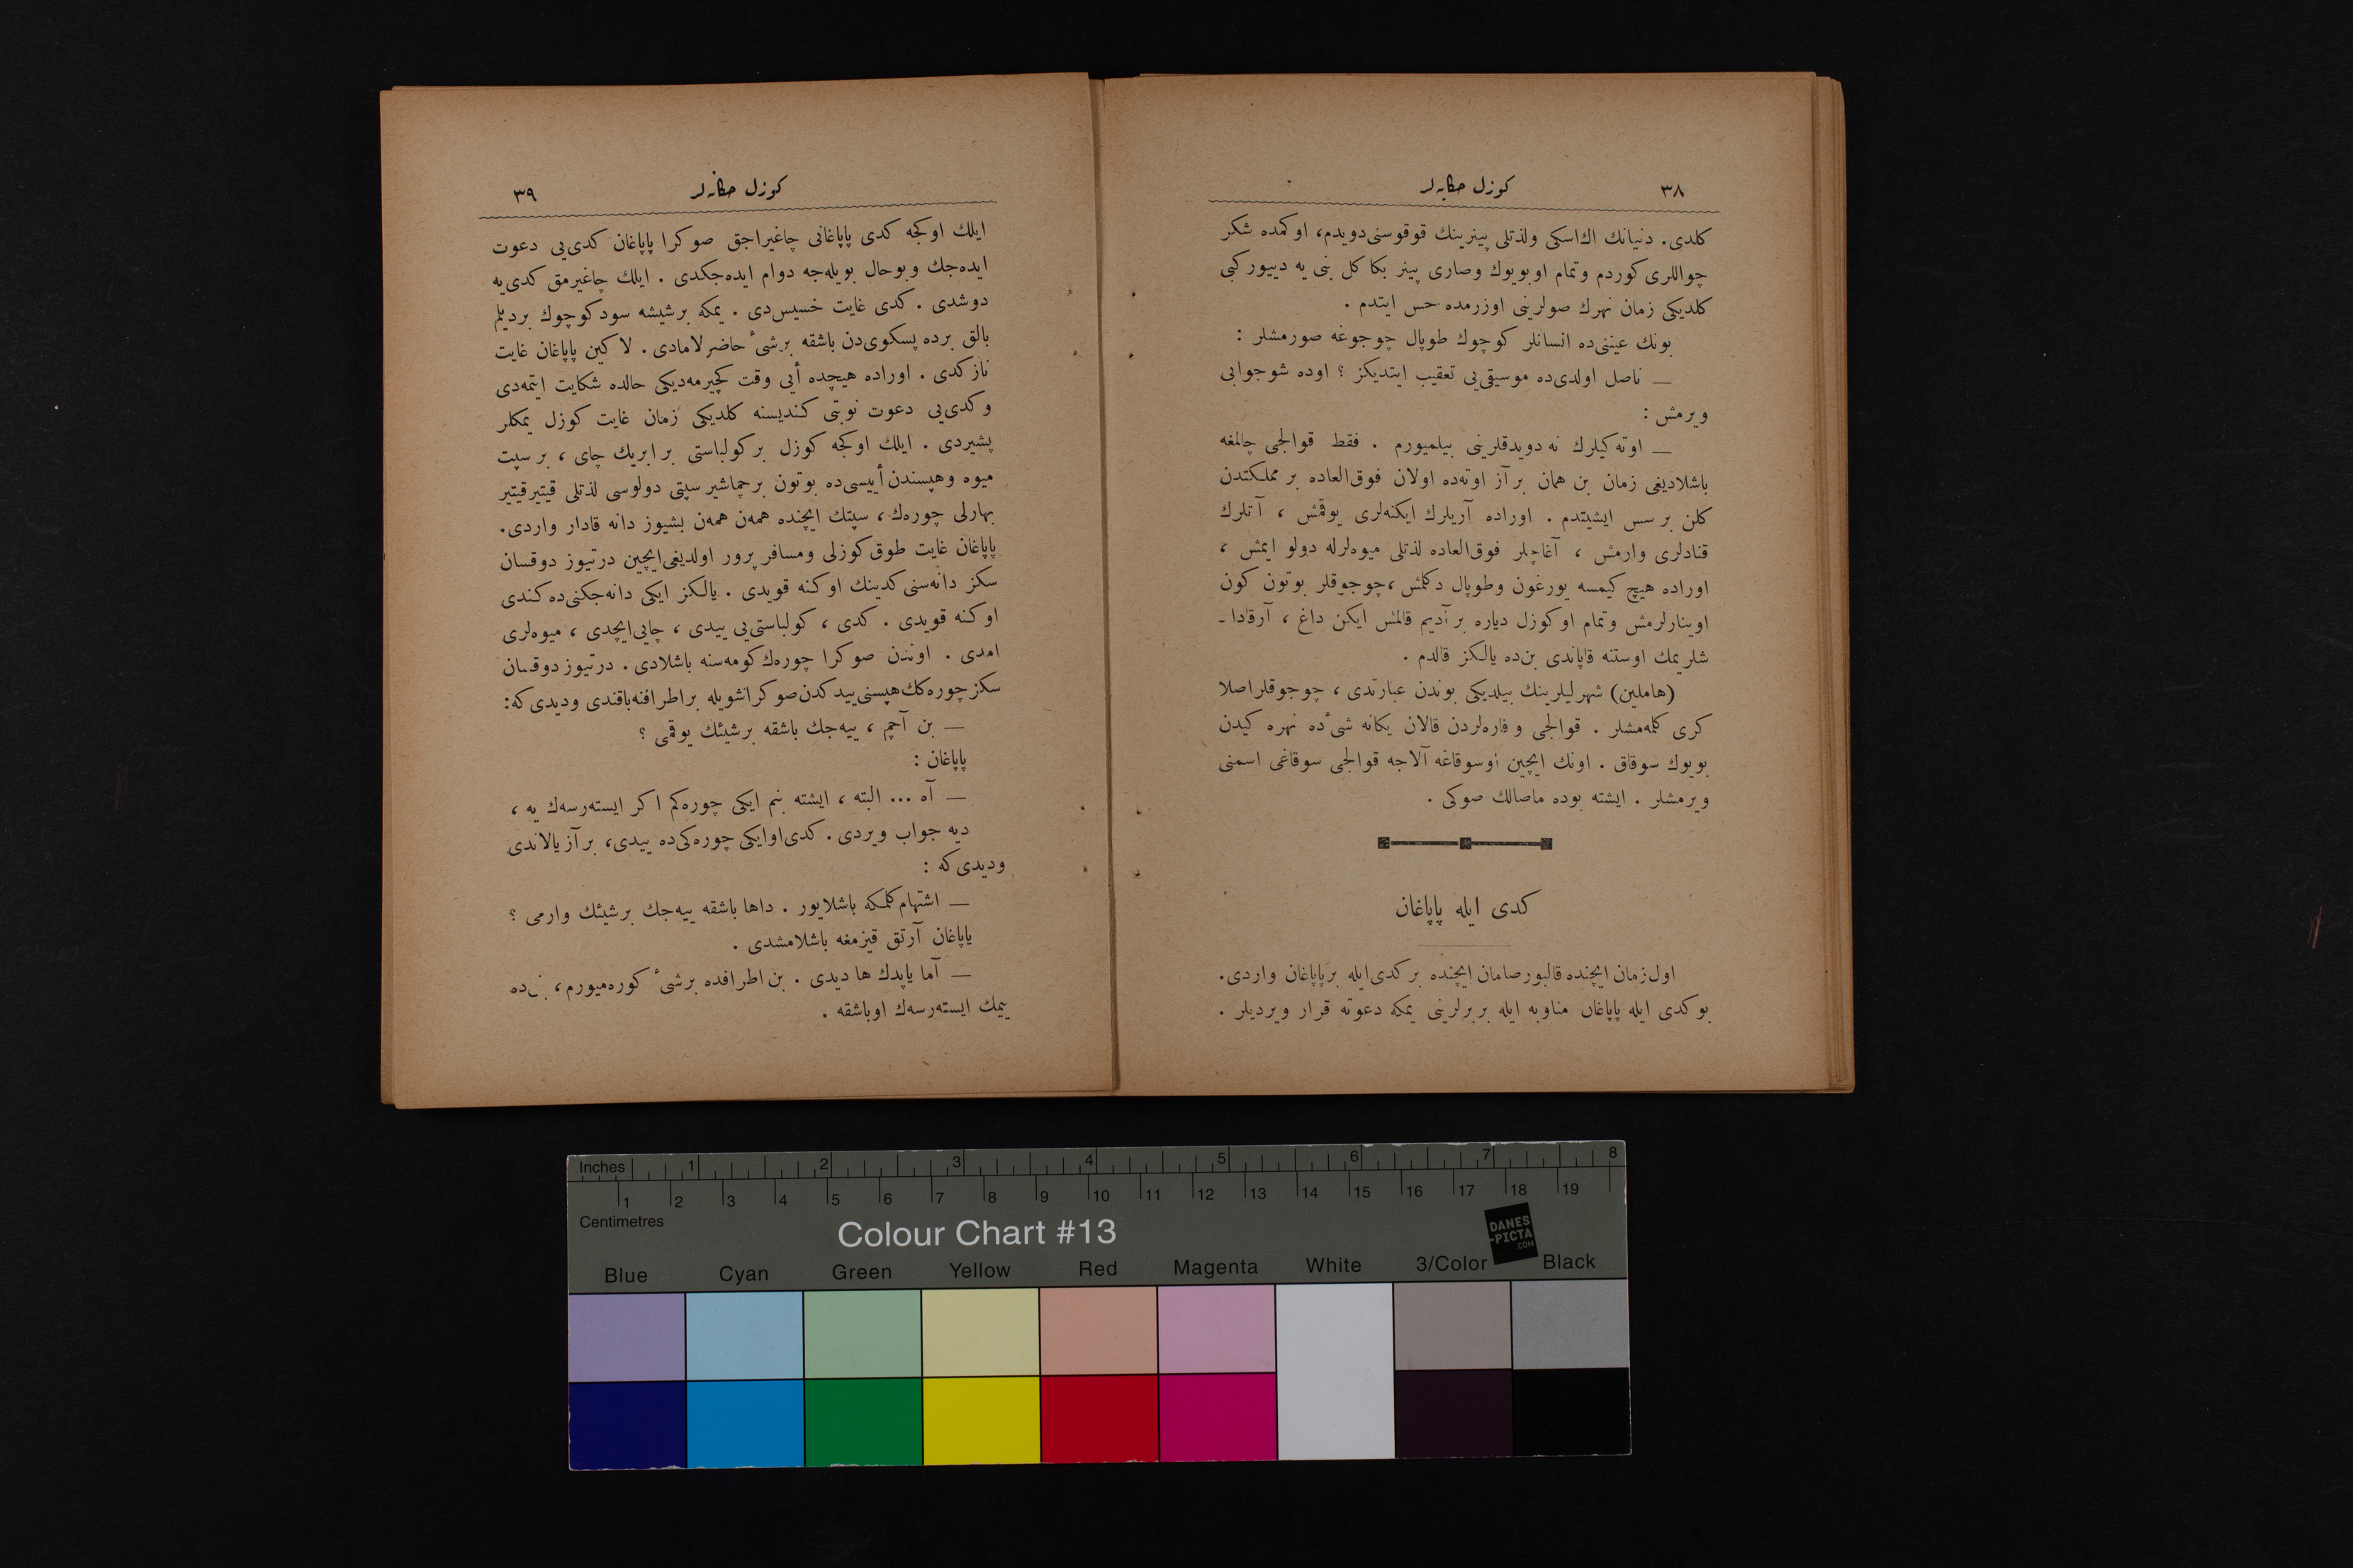 ٣٨
كوزل حكايه‌لر
كلدى. دنيانك اك‌اسكى ولذتلى پينرينك قوقوسنى‌دويدم، اوكمده شكر
چواللرى كوردم وتمام اوبويوك وصارى پينر بكا كل بنى يه دييوركبى
كلديكى زمان نهرك صولرينى اوزرمده حس ايتدم .
بونك عيننى‌ده انسانلر كوچوك طوپال چوجوغه صورمشلر :
— ناصل اولدى‌ده موسيقى‌يى تعقيب ايتديكز ؟ اوده شوجوابى
ويرمش :
— اوته‌كيلرك نه دويدقلرينى بيلميورم . فقط قوالجى چالمغه
باشلاديغى زمان بن همان بر آز اوته‌ده اولان فوق‌العاده بر مملكتدن
كلن بر سس ايشيتدم . اوراده آريلرك ايكنه‌لرى يوقمش ، آتلرك
قنادلرى وارمش ، آغاچلر فوق‌العاده لذتلى ميوه‌لرله دولو ايمش ،
اوراده هيچ كيمسه يورغون وطوپال دكلمش ،چوجوقلر بوتون كون
اوينارلرمش وتمام اوكوزل دياره بر آديم قالمش ايكن داغ ، آرقادا -
شلريمك اوستنه قاپاندى بن‌ده يالكز قالدم .
(هاملين) شهرليلرينك بيلديكى بوندن عبارتدى ، چوجوقلر اصلا
كرى كلمه‌مشلر . قوالجى و فاره‌لردن قالان يكانه شئ‌ده نهره كيدن
بويوك سوقاق . اونك ايچين اوسوقاغه آلاجه قوالجى سوقاغى اسمنى
ويرمشلر . ايشته بوده ماصالك صوكى .
كدى ايله پاپاغان
اول زمان ايچنده قالبور صامان ايچنده بر كدى ايله بر پاپاغان واردى.
بوكدى ايله پاپاغان مناوبه ايله بربرلرينى يمكه دعوته قرار ويرديلر .
كوزل حكايه‌لر
٣٩
ايلك اوكجه كدى پاپاغانى چاغيراجق صوكرا پاپاغان كدى‌يى دعوت
ايده‌جك وبوحال بويله‌جه دوام ايده‌جكدى . ايلك چاغيرمق كدى‌يه
دوشدى . كدى غايت خسيس‌دى . يمكه برشيشه سود كوچوك برديلم
بالق برده پسكوى‌دن باشقه برشئ حاضرلامادى . لاكين پاپاغان غايت
نازكدى . اوراده هيچده أيى وقت كچيرمه‌ديكى حالده شكايت ايتمه‌دى
وكدى‌يى دعوت نوبتى كنديسنه كلديكى زمان غايت كوزل يمكلر
پشيردى . ايلك اوكجه كوزل بر كولباستى بر ابريك چاى ، بر سپت
ميوه وهپسندن أييسى‌ده بوتون برچماشير سپتى دولوسى لذتلى قيتير قيتير
بهارلى چوره‌ك ، سپتك ايچنده همه‌ن همه‌ن بشيوز دانه قادار واردى.
پاپاغان غايت طوق كوزلى ومسافرپرور اولديغى‌ايچين درتيوز دوقسان
سكز دانه‌سنى كدينك اوكنه قويدى . يالكز ايكى دانه‌جكنى‌ده كندى
اوكنه قويدى . كدى ، كولباستى‌يى ييدى ، چايى‌ايچدى ، ميوه‌لرى
امدى . اوندن صوكرا چوره‌ك كومه‌سنه باشلادى . درتيوز دوقسان
سكز چوره‌كك‌هپسنى‌ييدكدن‌صوكراشويله براطرافنه‌باقندى وديدى‌كه:
— بن آچم ، ييه‌جك باشقه برشيئك يوقمى ؟
پاپاغان :
— آه ... البته ، ايشته بنم ايكى چوره‌كم اكر ايسته‌رسه‌ك يه ،
ديه جواب ويردى . كدى‌اوايكى چوره‌كى‌ده ييدى، برآز يالاندى
وديدى‌كه :
— اشتهام كلمكه باشلايور . داها باشقه ييه‌جك برشيئك وارمى ؟
پاپاغان آرتق قيزمغه باشلامشدى .
— آما ياپدك ها ديدى . بن اطرافده برشئ كوره‌ميورم ، بنى‌ده
ييمك ايسته‌رسه‌ك اوباشقه .
Inches 1 2 3 4 5 6 7 8
1 2 3 4 5 6 7 8 9 10 11 12 13 14 15 16 17 18 19
Centimetres
Colour Chart #13
DANES
-PICTA
.COM
Blue Cyan Green Yellow Red Magenta White 3/Color Black